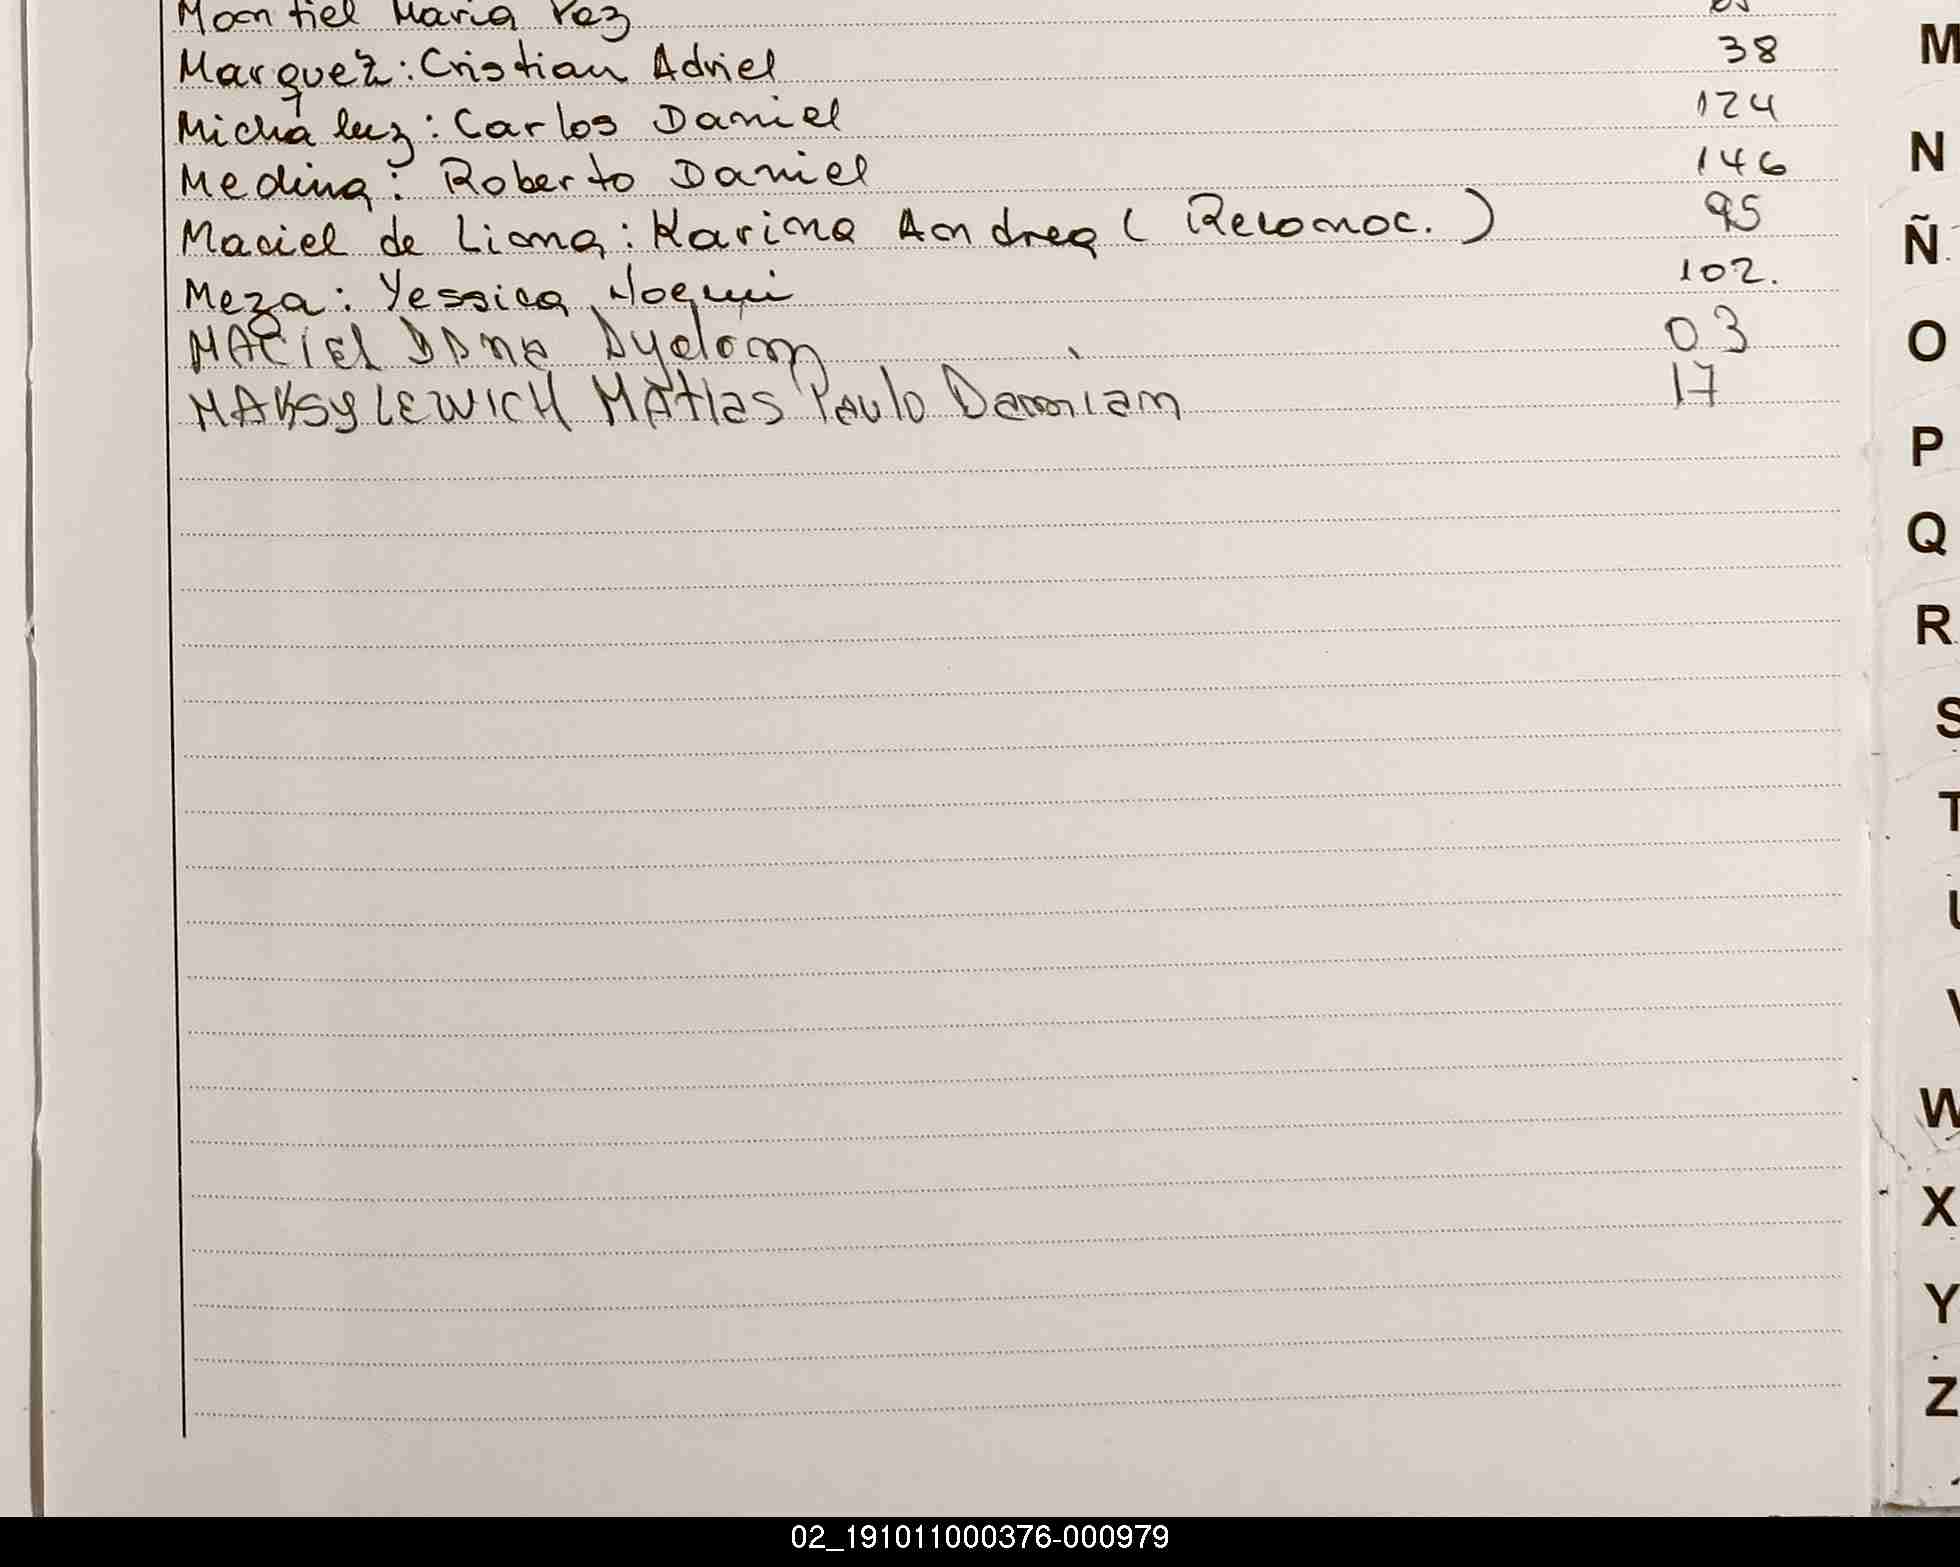 Montiel Maria Paz
Marquez: Cristian Adriel 38
Michaluz: Carlos Daniel 124
Medina: Roberto Daniel 146
Maciel de Lima: Karina Andrea ( Reconoc. ) 95
Meza: Yessica Noemi 102.
MACIEL DANA Aydelén 03
MAKSYLEWICH MAtias Paulo Damian 17
M
N
Ñ
O
P
Q
R
S
T
U
V
W
X
Y
Z
02_191011000376-000979